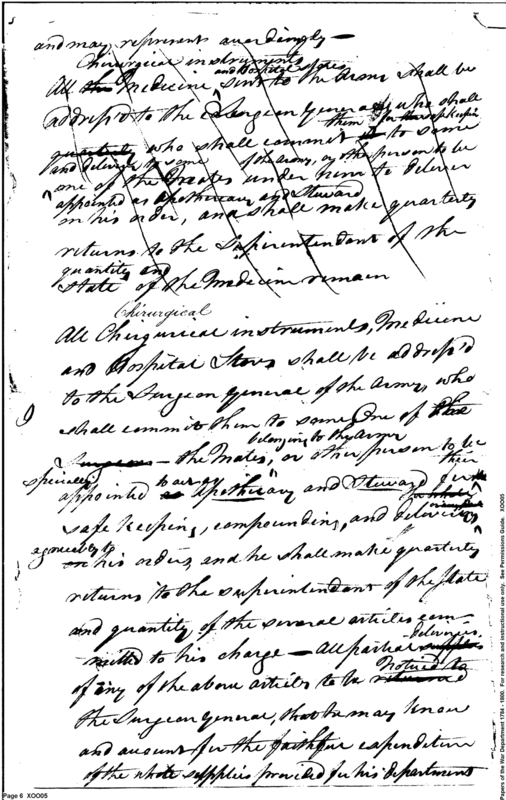 and may represent accordingly —
Chirurgical instruments
and Hospital stores
All the Medicine sent to the Army shall be
address'd to the Surgeon General, who shall
them for the safe keeping
quarterly who shall commit it to some
and deliver to some of the Army, or other person to be
one of the Mates under him to deliver
appointed as Apothecary and Steward
on his order, and shall make quarterly
returns to the Superintendent of the
quantity and
state of the Medicine remain
Chirurgical
All Chirgurical instruments, Medicine
and Hospital Stores shall be address'd
to the Surgeon General of the Army, who
shall commit them to some One of the
belonging to the Army
Surgeons — the Mates, or other person to be
specially to act as their
appointed as Apothecary and Steward for
safe keeping, compounding, and delivery,
agreeably to
on his orders, and he shall make quarterly
returns to the superintendent of the State
and quantity of the several articles com-
deliveries
mitted to his charge — All partial supplies
noticed to
of any of the above articles to be returned
the Surgeon General, that he may know
and account for the faithful expenditure
of the whole supplies provided for his department
Page 6 XOO05
Papers of the War Department 1784 - 1800. For research and instructional use only. See Permissions Guide. XOO05